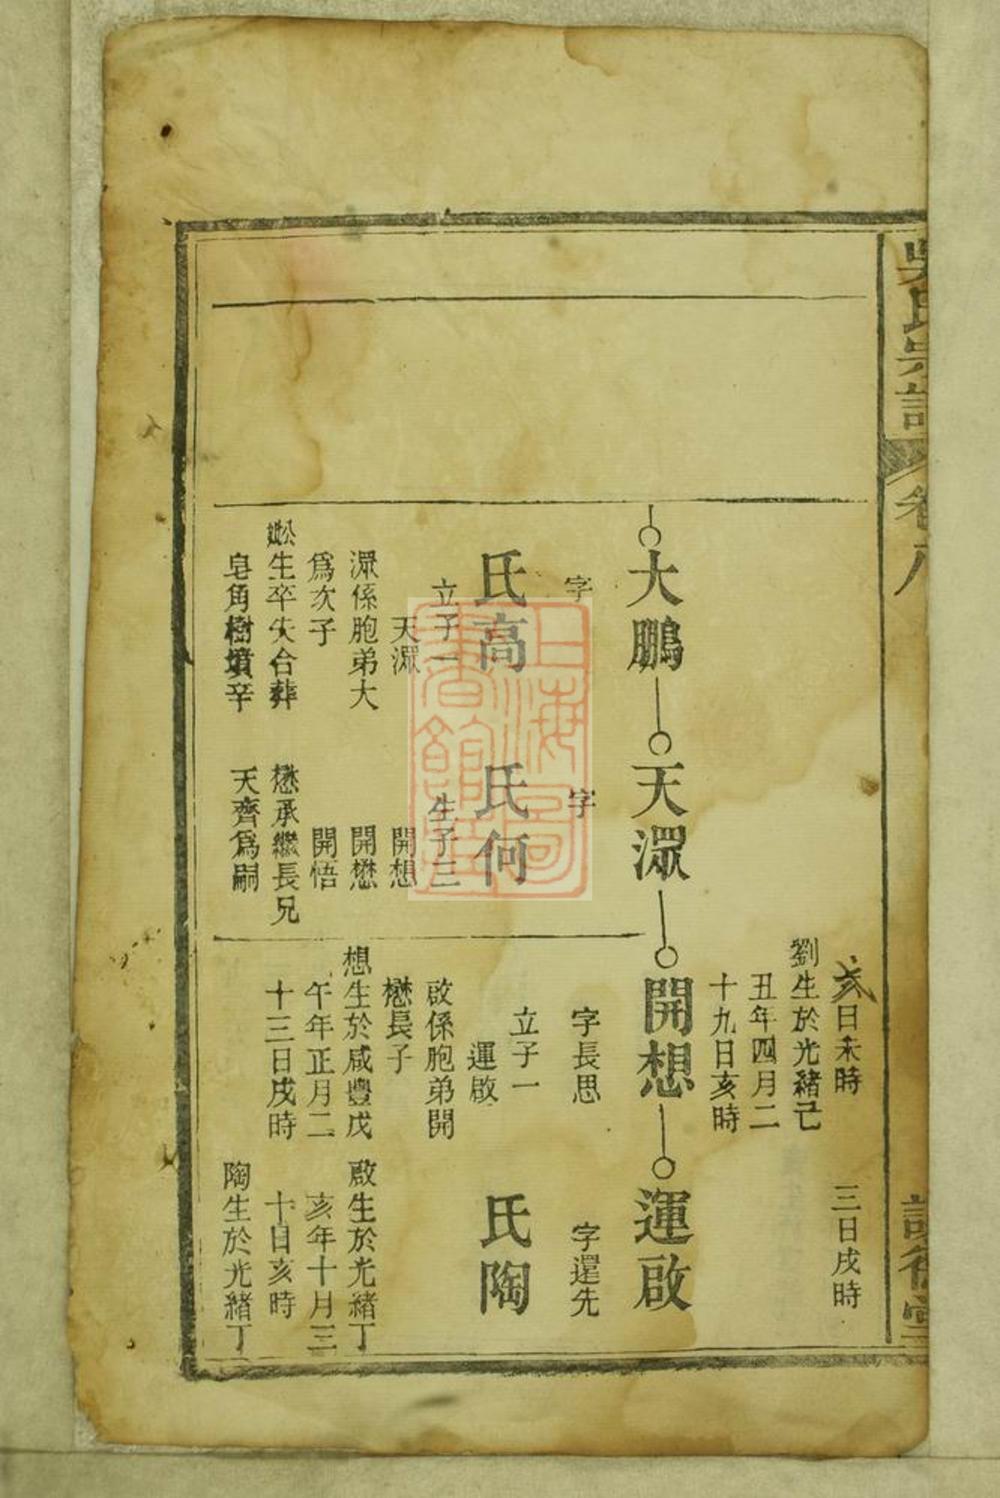 吳氏宗譜
卷八
亥日未時
劉生於光緒己
丑年四月二
十九日亥時
三日戌時
大鵬
字
氏高
立子一
天𣽂
𣽂係胞弟大
為次子
妣生卒失合葬
皂角樹墳辛
天𣽂
字
氏何
生子三
開想
開懋
開悟
懋承繼長兄
天齊為嗣
開想
字長思
立子一
運啟
啟係胞弟開
懋長子
想生於咸豐戊
午年正月二
十三日戌時
運啟
字還先
氏陶
啟生於光緒丁
亥年十月三
十日亥時
陶生於光緒丁
上海圖書館藏